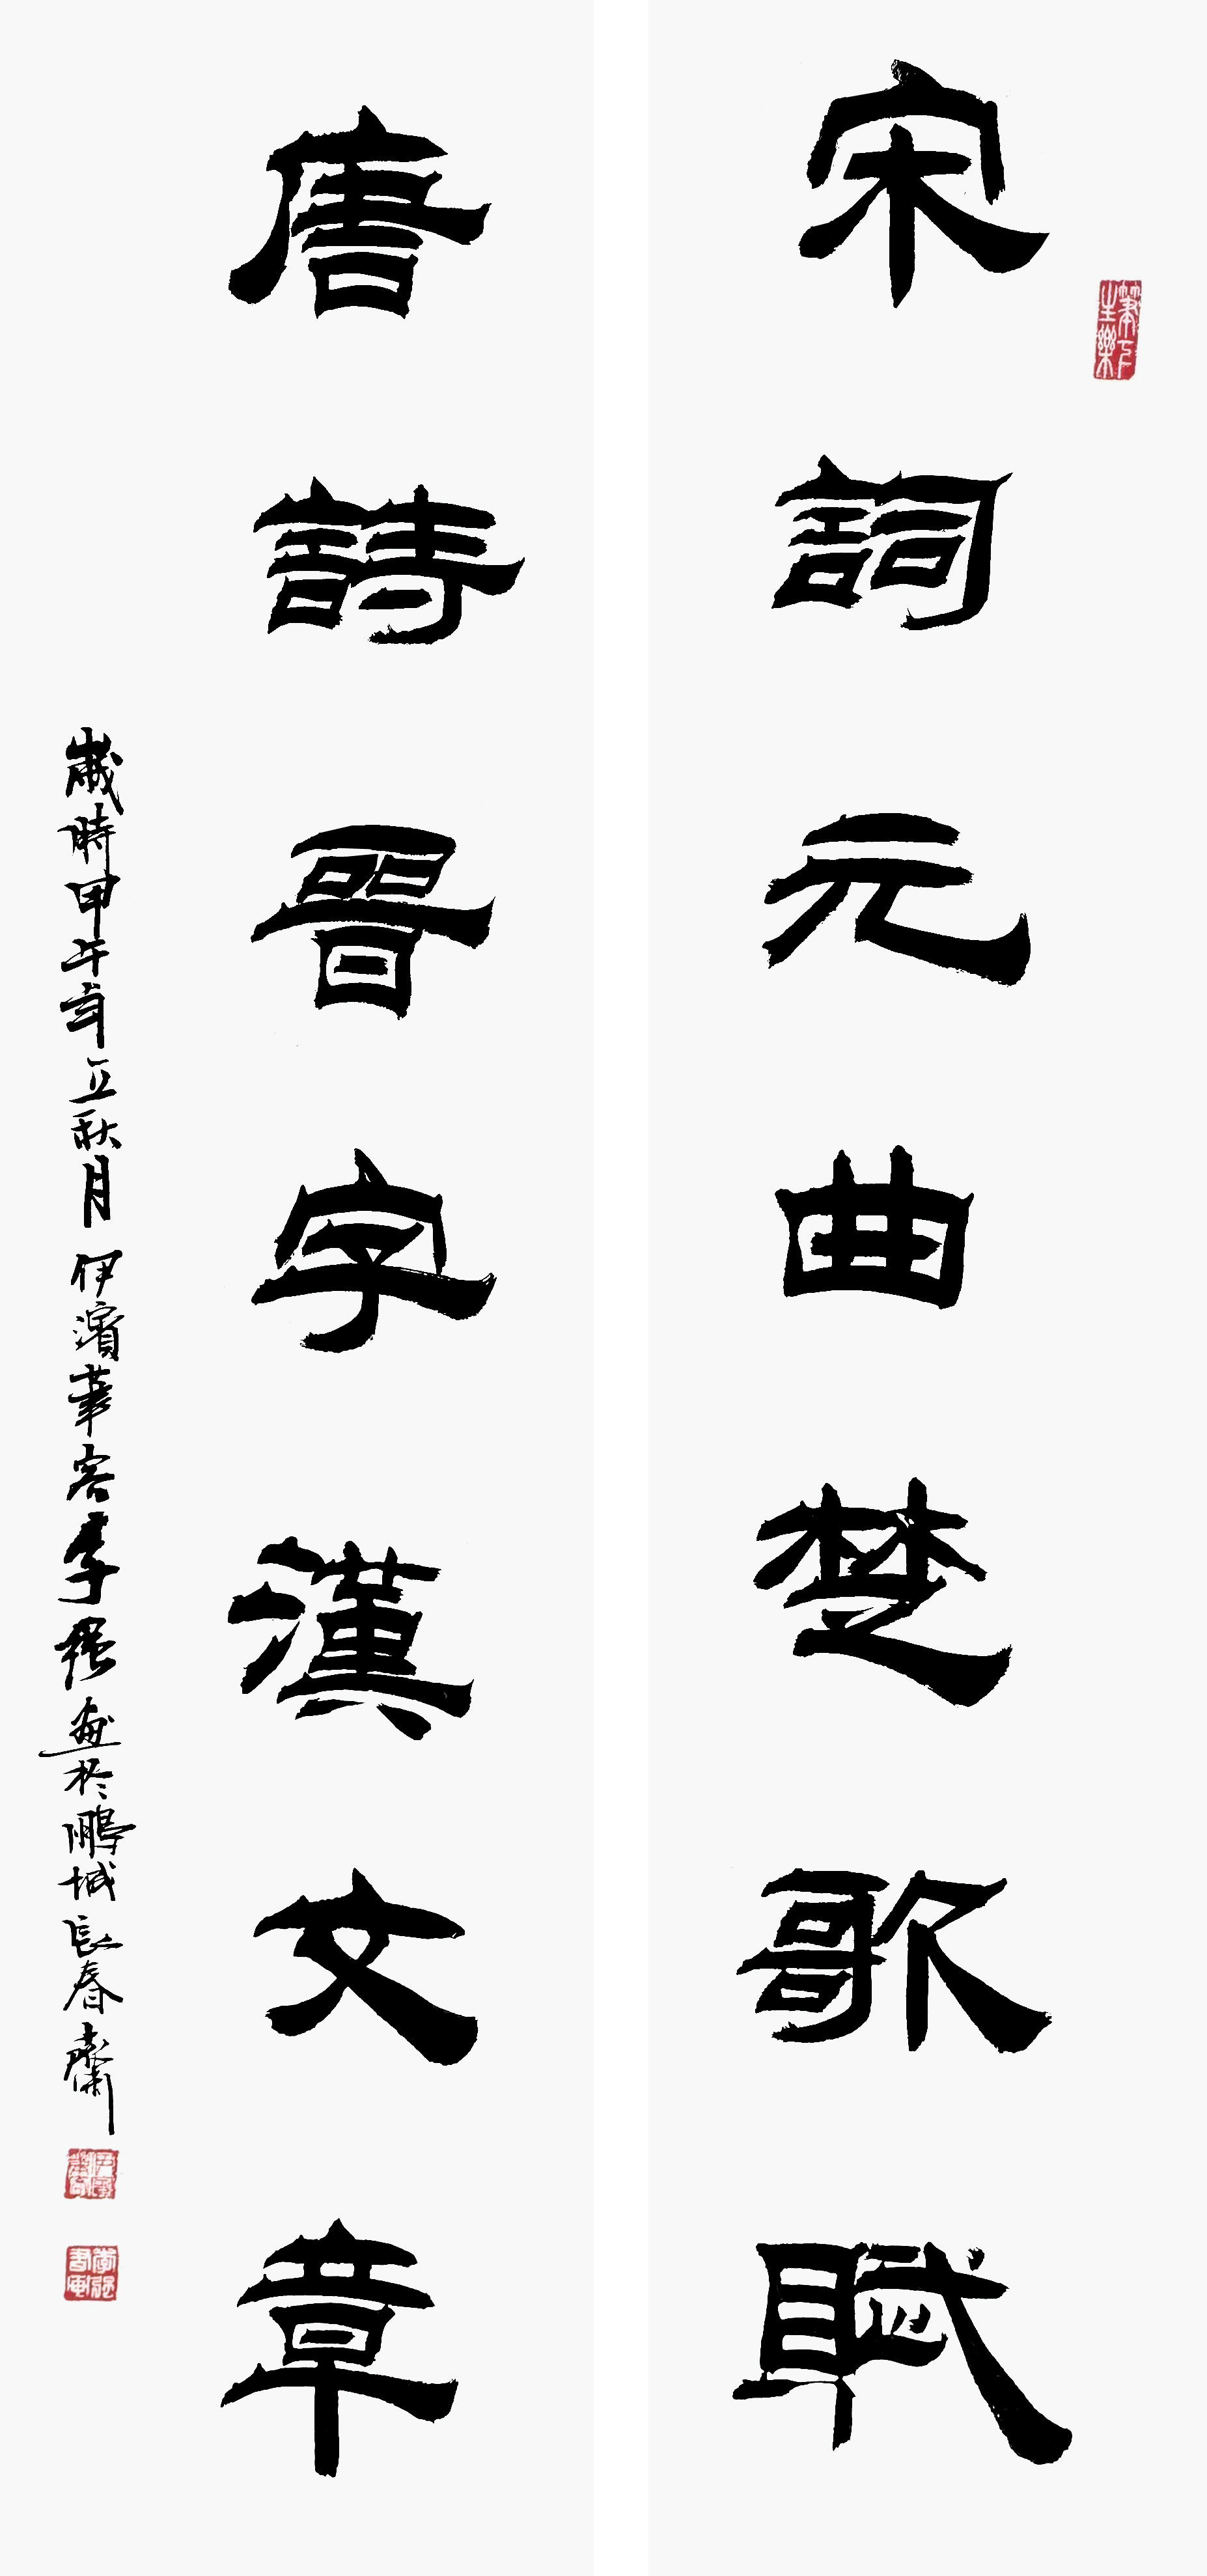 宋詞元曲楚歌賦
唐詩晉字漢文章
歲時甲午年立秋月伊濱華客李強畫於鵬城長春齋
筆下生樂